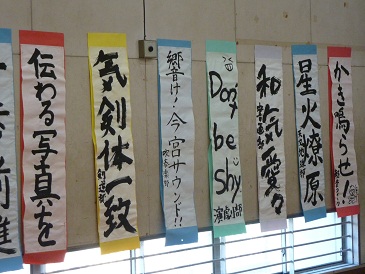 かき鳴らせ!
星火燎原
和気愛々
Don't be shy
演劇部
響け!今宮サウンド!!
吹奏楽部
気剣体一致
剣道部
伝わる写真を